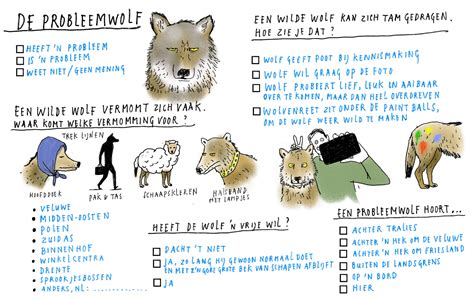 DE PROBLEEMWOLF
HEEFT 'N PROBLEEM
IS 'N PROBLEEM
WEET NIET / GEEN MENING
EEN WILDE WOLF KAN ZICH TAM GEDRAGEN.
HOE ZIE JE DAT?
WOLF GEEFT POOT BIJ KENNISMAKING
WOLF WIL GRAAG OP DE FOTO
WOLF PROBEERT LIEF, LEUK EN AAIBAAR
OVER TE KOMEN, MAAR DAN HEEL OVERDREVEN
WOLVENREET ZIT ONDER DE PAINTBALLS,
OM DE WOLF WEER WILD TE MAKEN
EEN WILDE WOLF VERMOMT ZICH VAAK.
WAAR KOMT WELKE VERMOMMING VOOR?
TREK LIJNEN
HOOFDDOEK
PAK & TAS
SCHAAPSKLEREN
HALSBAND
MET LAMPJES
VELUWE
MIDDEN-OOSTEN
POLEN
ZUIDAS
BINNENHOF
WINKELCENTRA
DRENTE
SPROOKJESBOSSEN
ANDERS, NL: ..............
HEEFT DE WOLF 'N VRIJE WIL?
DACHT 'T NIET
JA, ZO LANG HIJ GEWOON NORMAAL DOET
EN MET Z'N GORE GROTE BEK VAN SCHAPEN AFBLIJFT
JA
EEN PROBLEEMWOLF HOORT...
ACHTER TRALIES
ACHTER 'N HEK OM DE VELUWE
ACHTER 'N HEK OM FRIESLAND
BUITEN DE LANDSGRENS
OP 'N BORD
HIER